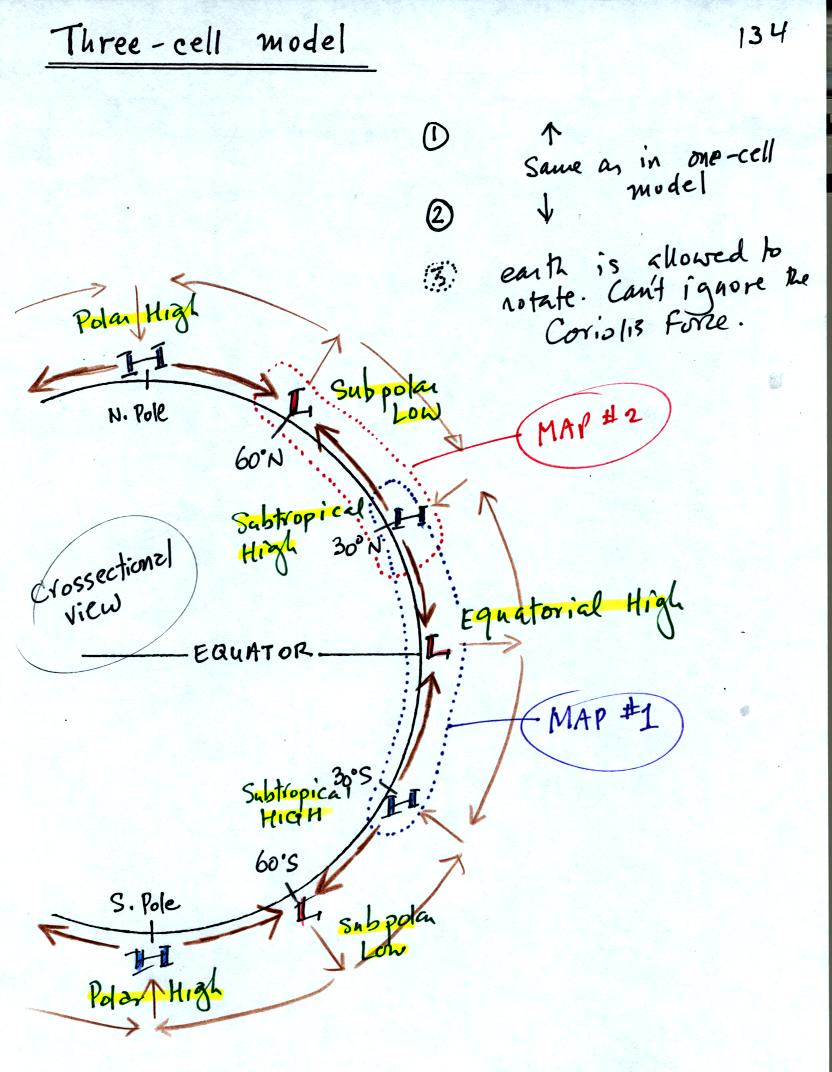 Three-cell model
134
① ↑
Same as in one-cell
model
② ↓
③ earth is allowed to
rotate. Can't ignore the
Coriolis Force.
Polar High
H
N. Pole
L
Subpolar
Low
60°N
MAP #2
Subtropical
High
H
30°N
Crossectional
view
Equatorial High
EQUATOR
L
MAP #1
30°S
Subtropical
HIGH
H
60°S
S. Pole
L
Subpolar
Low
H
Polar High